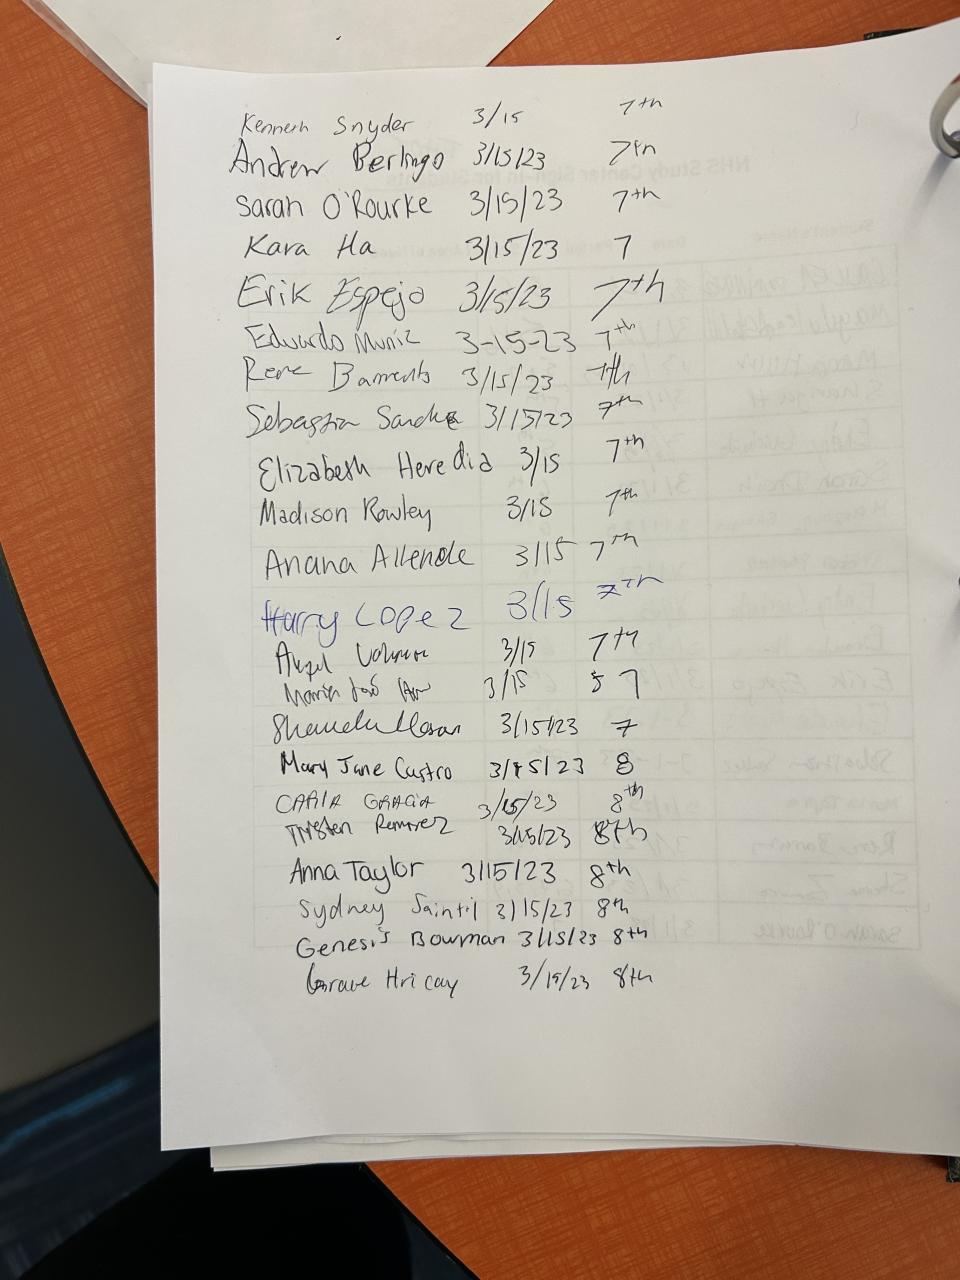 Kenneth Snyder 3/15 7th
Andrew Berlingo 3/15/23 7th
Sarah O'Rourke 3/15/23 7th
Kara Ha 3/15/23 7
Erik Espejo 3/15/23 7th
Eduardo Muniz 3-15-23 7th
Rene 3/15/23 7th
Sebastian 3/15/23 7th
Elizabeth Heredia 3/15 7th
Madison Rowley 3/15 7th
Ariana Allende 3/15 7th
Harry Lopez 3/15 7th
3/15 7th
3/15 7
3/15/23 7
Mary Jane Castro 3/15/23 8
CARLA GRACIA 3/15/23 8th
Tristen Ramirez 3/15/23 8th
Anna Taylor 3/15/23 8th
Sydney Saintil 3/15/23 8th
Genesis Bowman 3/15/23 8th
Hricay 3/15/23 8th